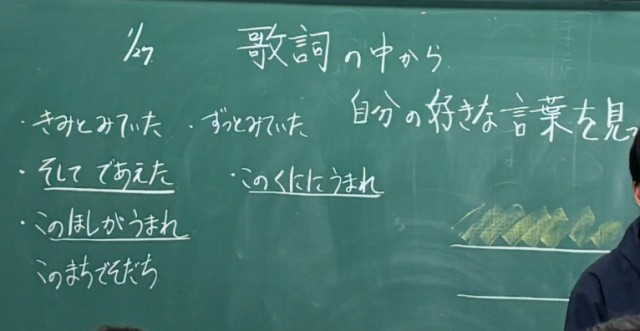 1/27
歌詞の中から
自分の好きな言葉を見
・きみとみていた
・ずっとみていた
・そして であえた
・このくににうまれ
・このほしがうまれ
このまちでそだち